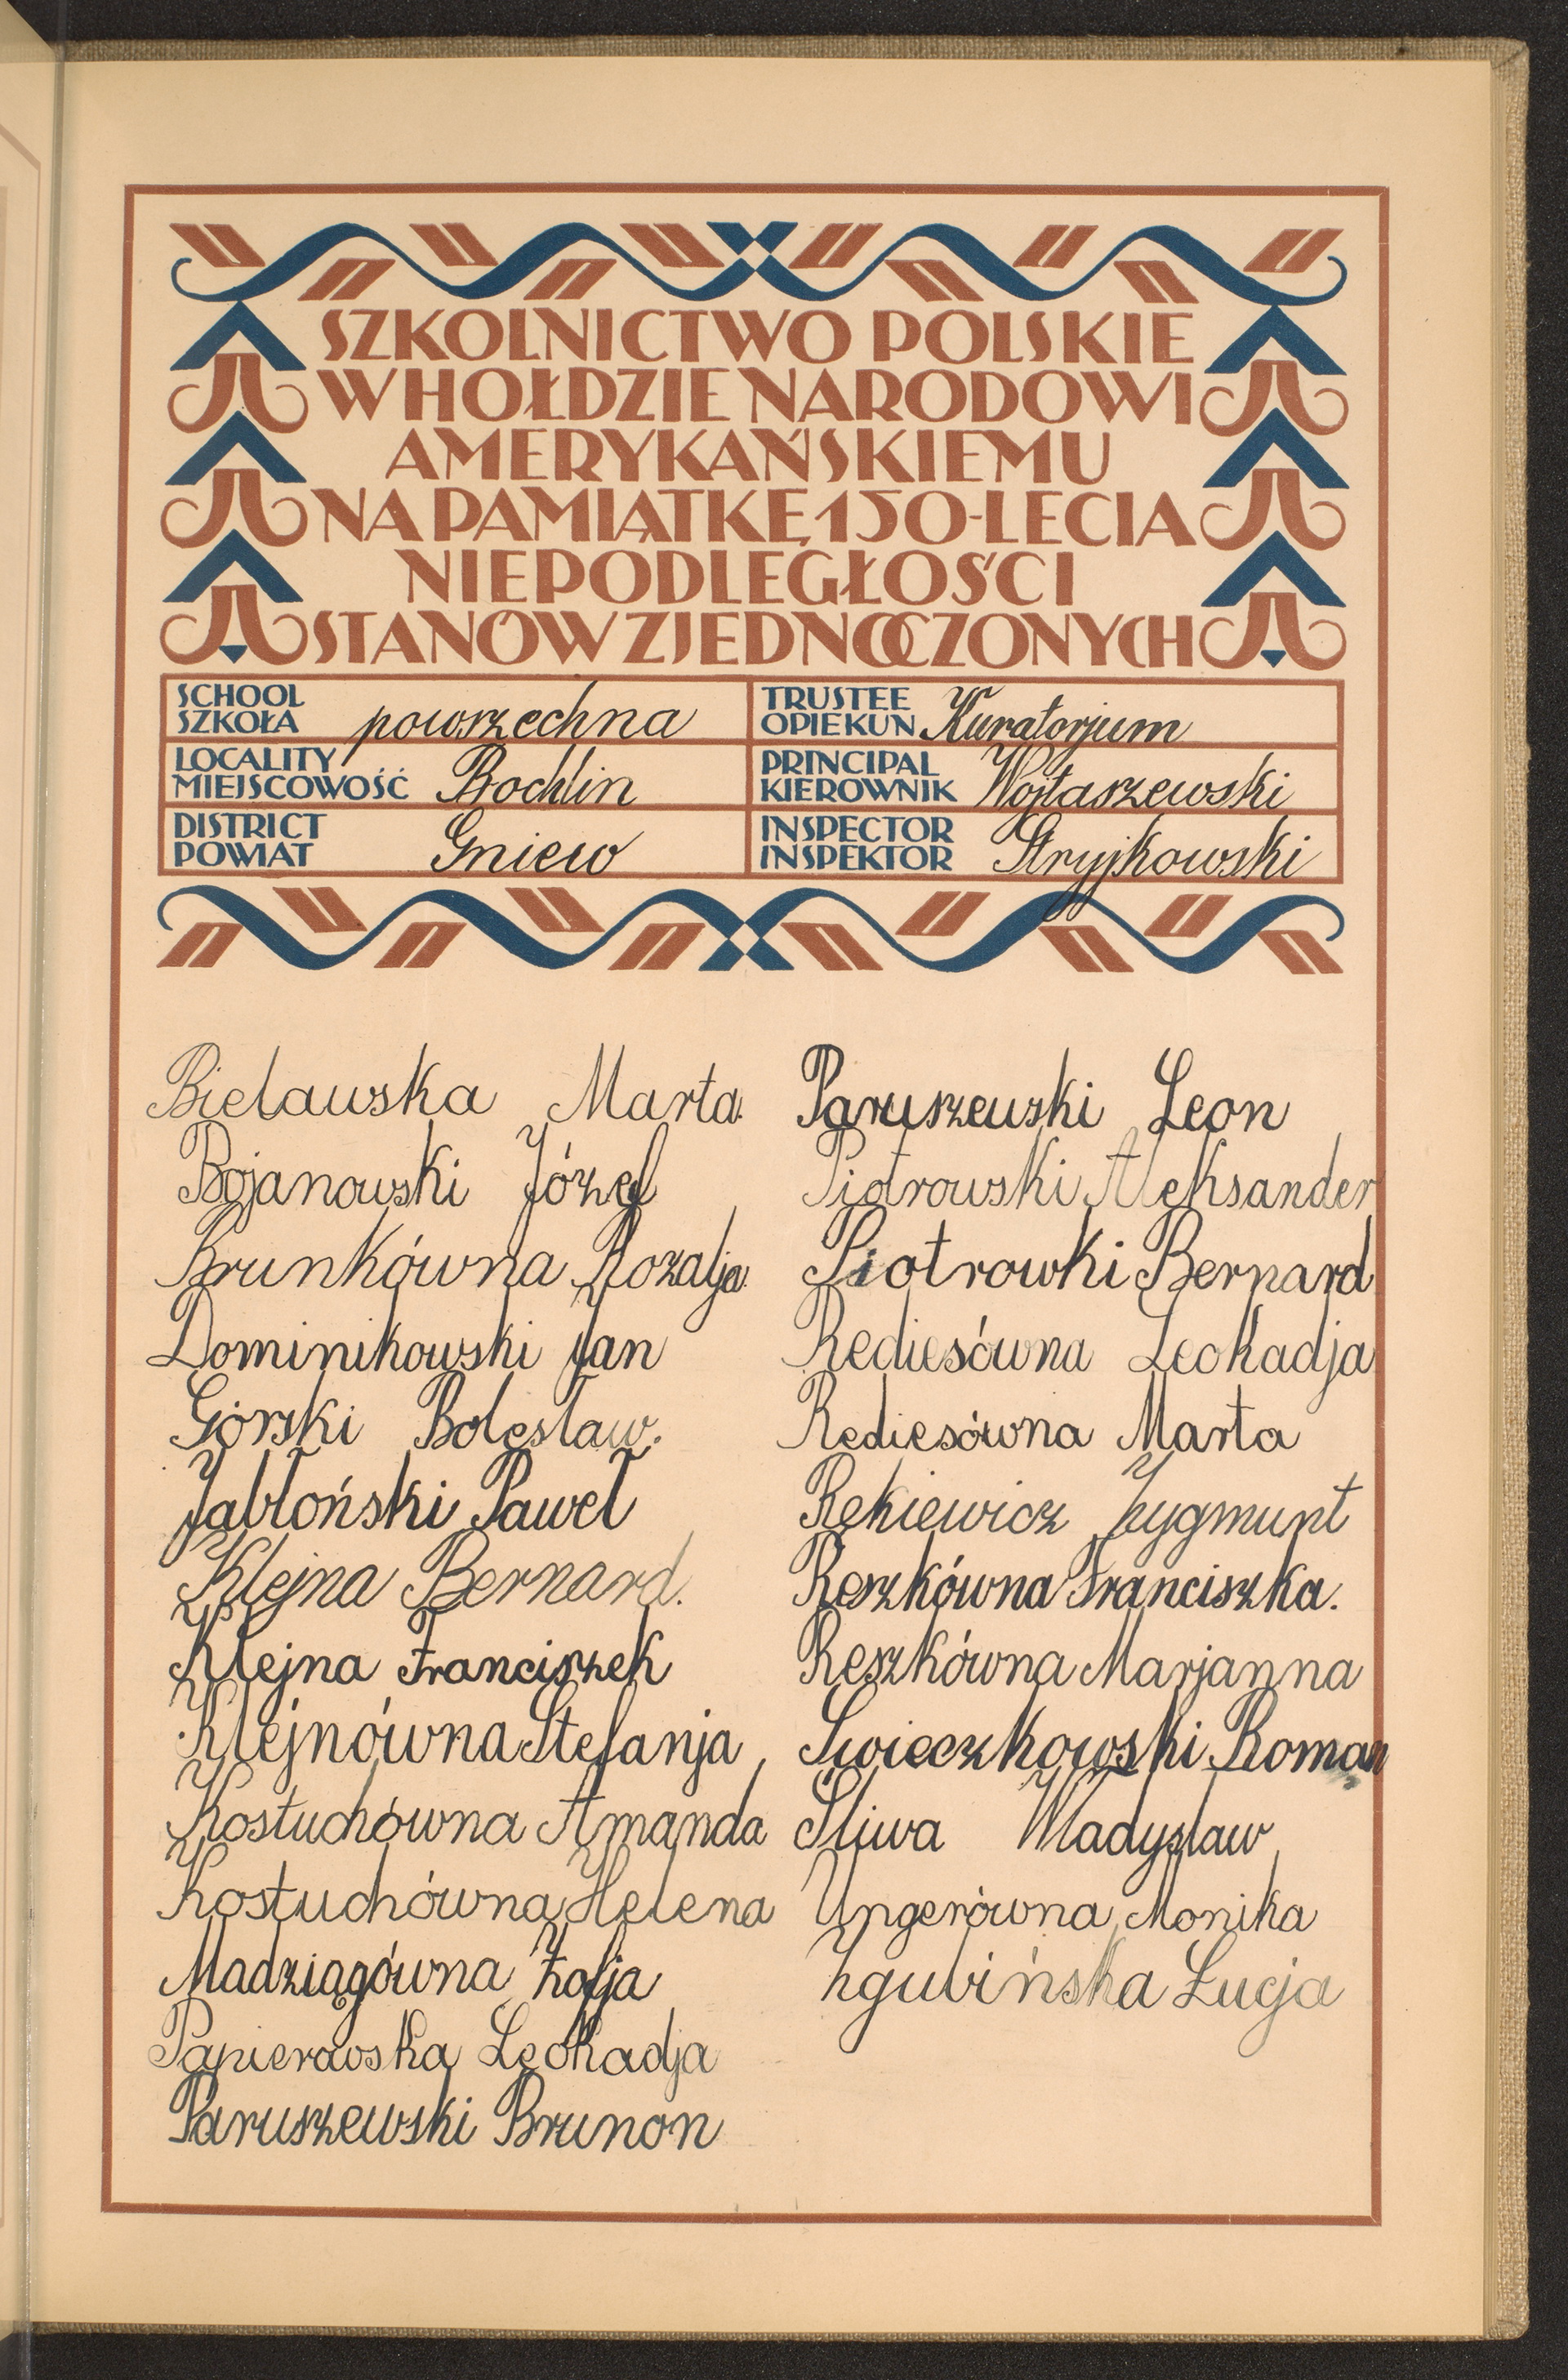 SZKOLNICTWO POLSKIE
W HOŁDZIE NARODOWI
AMERYKAŃSKIEMU
NA PAMIĄTKĘ 150-LECIA
NIEPODLEGŁOŚCI
STANÓW ZJEDNOCZONYCH
SCHOOL
SZKOŁA powszechna
LOCALITY
MIEJSCOWOŚĆ Bochlin
DISTRICT
POWIAT Gniew
TRUSTEE
OPIEKUN Kuratorjum
PRINCIPAL
KIEROWNIK Wojtaszewski
INSPECTOR
INSPEKTOR Stryjkowski
Bielawska Marta.
Bojanowski Józef
Brunkówna Rozalja.
Dominikowski Jan
Górski Bolesław.
Jabłoński Paweł
Klejna Bernard.
Klejna Franciszek
Klejnówna Stefanja
Kostuchówna Amanda
Kostuchówna Helena
Madziągówna Zofja
Papierowska Leokadja
Paruszewski Brunon
Paruszewski Leon
Piotrowski Aleksander
Piotrowki Bernard
Rediesówna Leokadja
Rediesówna Marta
Rekiewicz Zygmunt
Reszkówna Franciszka.
Reszkówna Marjanna
Świeczkowski Roman
Śliwa Władysław
Ungerówna Monika
Zgubińska Łucja